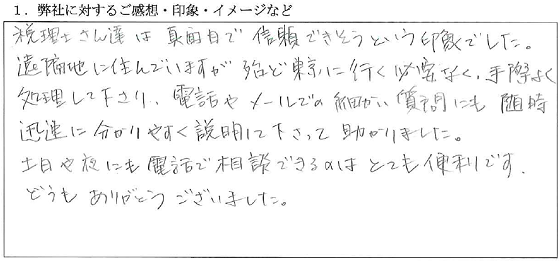 1. 弊社に対するご感想・印象・イメージなど
税理士さん達は真面目で信頼できそうという印象でした。
遠隔地に住んでいますが殆ど東京に行く必要なく、手際よく
処理して下さり、電話やメールでの細かい質問にも随時
迅速に分かりやすく説明して下さって助かりました。
土日や夜にも電話で相談できるのはとても便利です.
どうもありがとうございました。